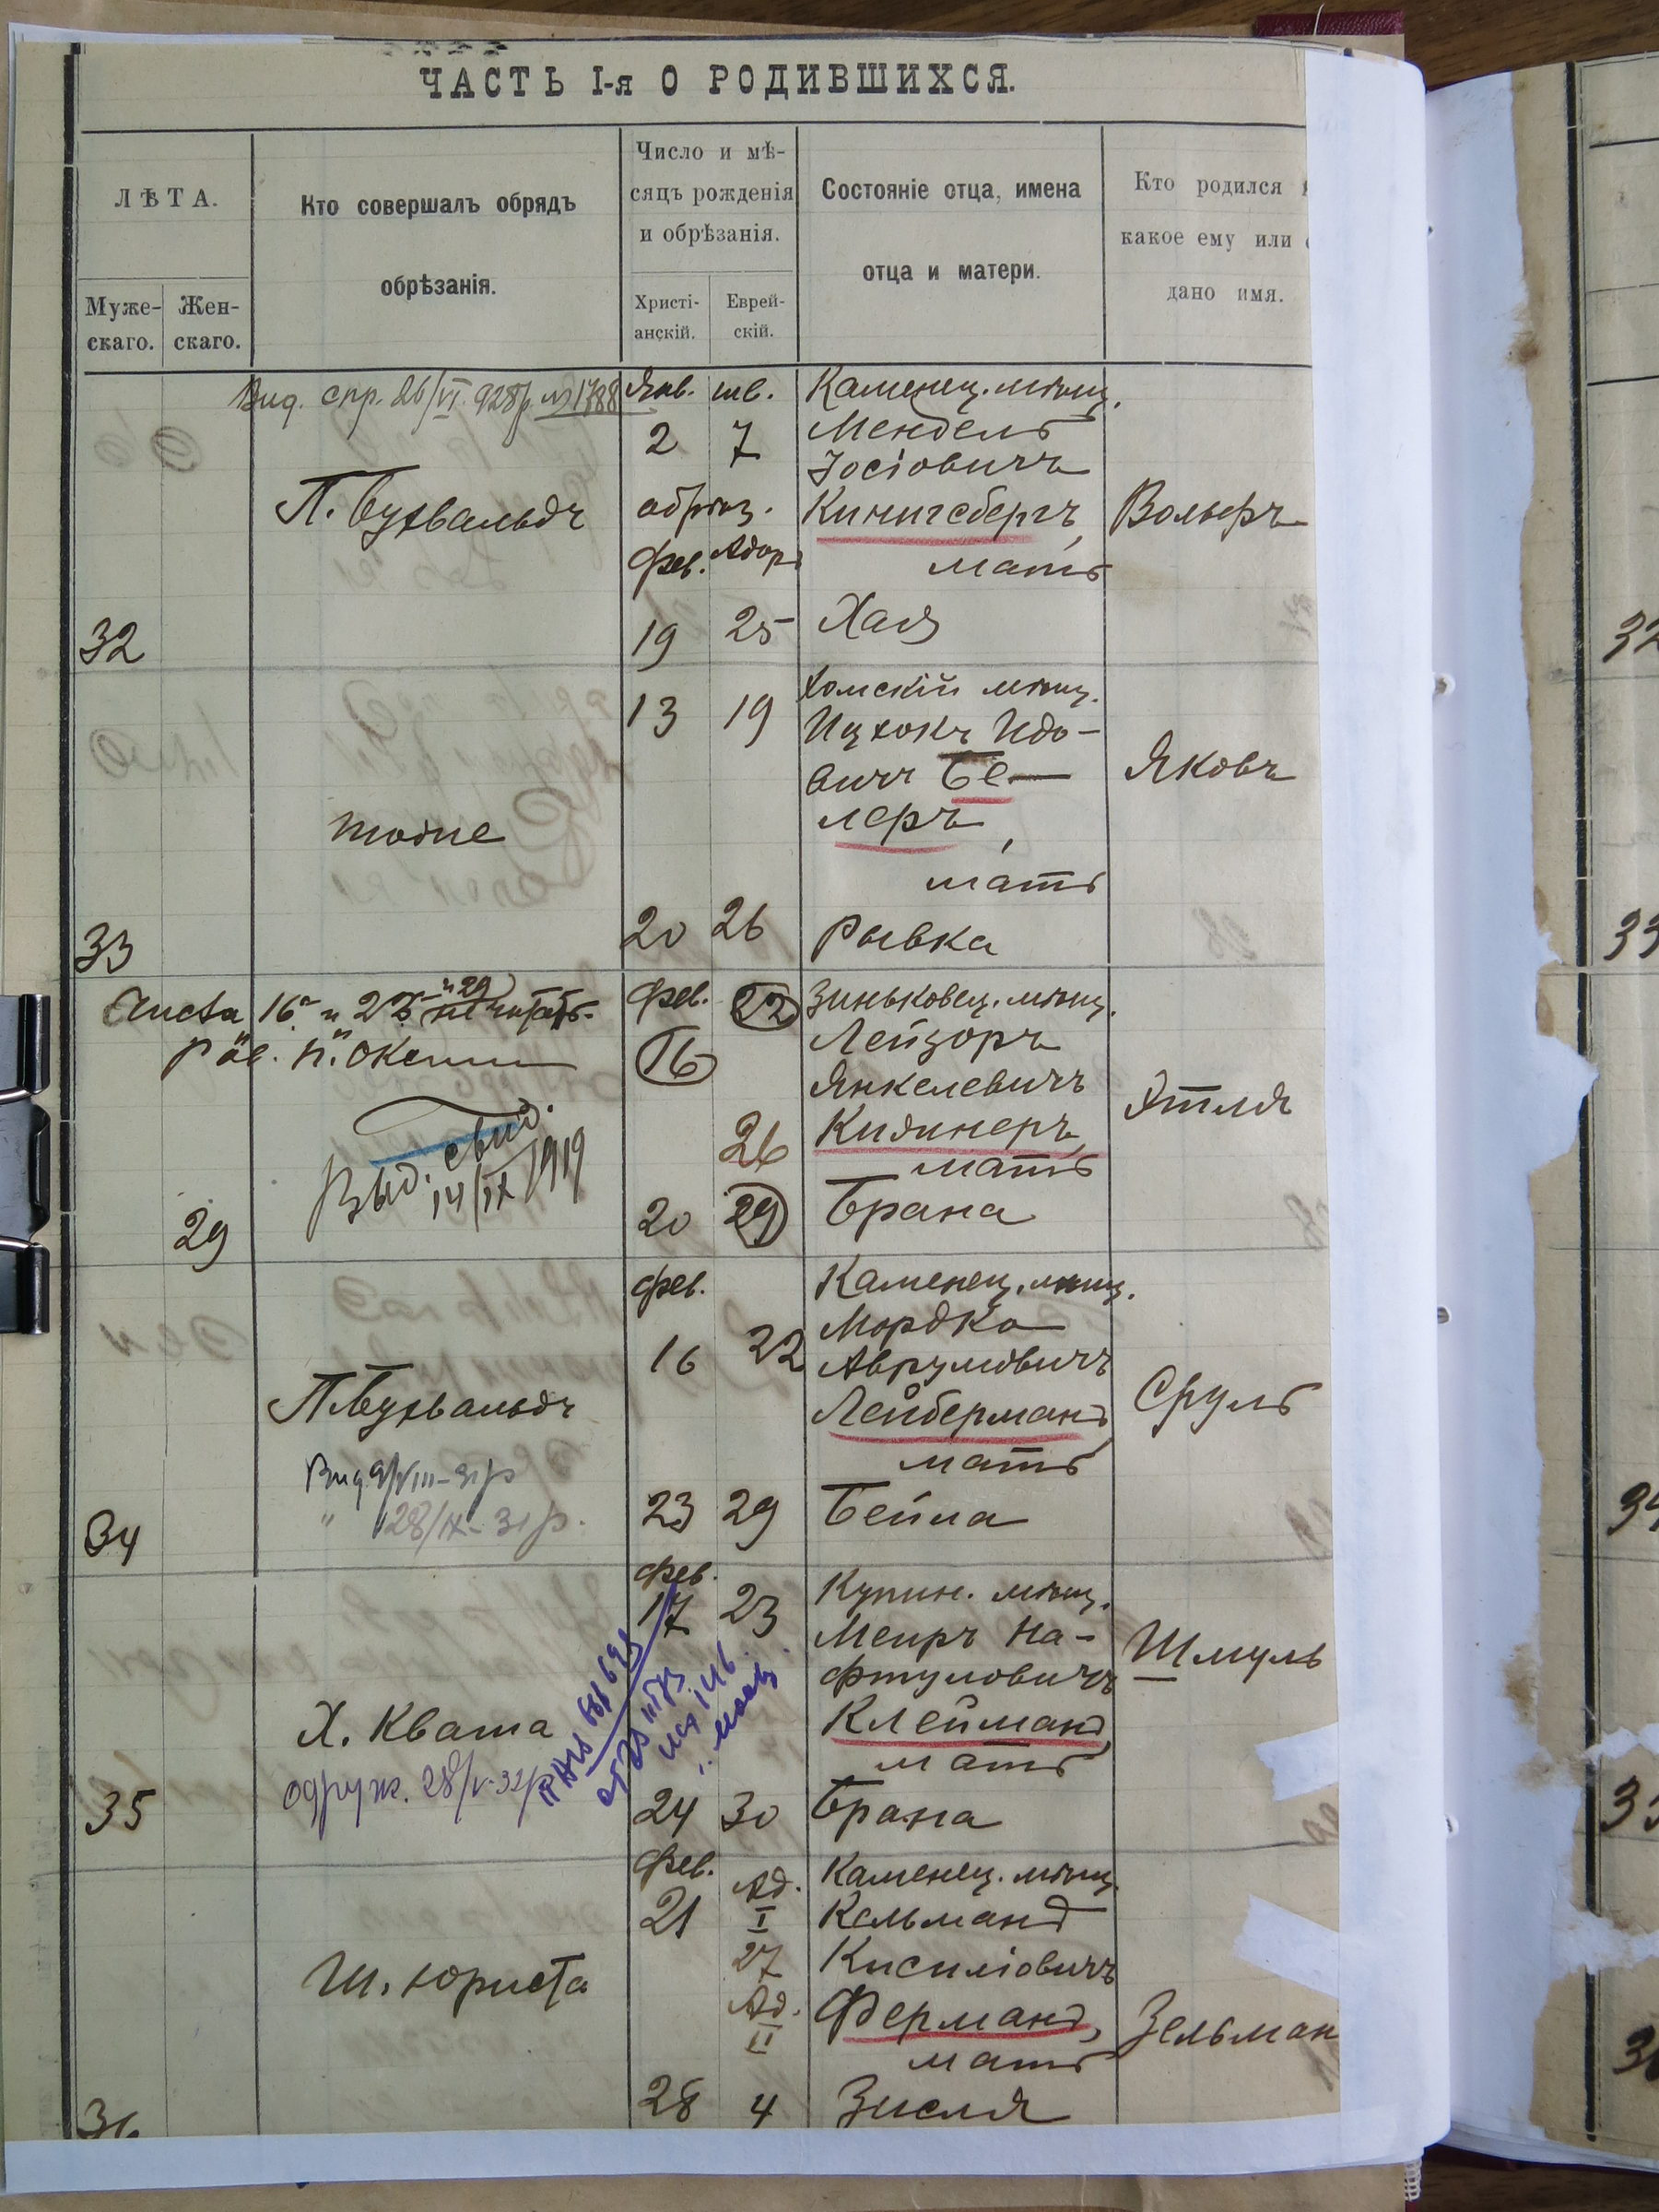 ЧАСТЬ I-я О РОДИВШИХСЯ.
ЛѢТА.
Муже-
скаго.
Жен-
скаго.
Кто совершалъ обрядъ
обрѣзанія.
Число и мѣ-
сяцъ рожденія
и обрѣзанія.
Христі-
анскій.
Еврей-
скій.
Состояніе отца, имена
отца и матери.
Кто родился
какое ему или
дано имя.
32
Вид. спр. 26/VI 928р. № 1788
П. Бухвальдъ
Янв. шв.
2 7
обрѣз.
Фев. Адаръ
19 25
Каменец. мѣщ.
Мендель
Іосіовичъ
Кинигсбергъ,
мать
Хая
Вольфъ
33
тоже
13 19
20 26
Хомскій мѣщ.
Ицхокъ Идо-
вичъ Бе-
леръ,
мать
Рывка
Яковъ
29
16 и 22 и 29
Рав.
Выд. свид.
14/IX 1919
Фев. 22
16
26
20 29
Зиньковец. мѣщ.
Лейзоръ
Янкелевичъ
мать
Брана
Этля
34
П. Бухвальдъ
Вид. 9/VIII-31р
" 28/IX-31р.
фев.
16 22
23 29
Каменец. мѣщ.
Мордко
Аврумовичъ
Лейберманъ,
мать
Бейла
Сруль
35
Х. Кваша
одруж. 28/V-32р
Фев.
17 23
24 30
Купин. мѣщ.
Меиръ На-
фтуловичъ
Клейманъ,
мать
Брана
Шмуль
36
Ш. Юриста
Фев. Ад.
21 I
27
Ад.
II
28 4
Каменец. мѣщ.
Кельманъ
Кисиліовичъ
Ферманъ,
мать
Зисля
Зельман
32
33
34
35
36